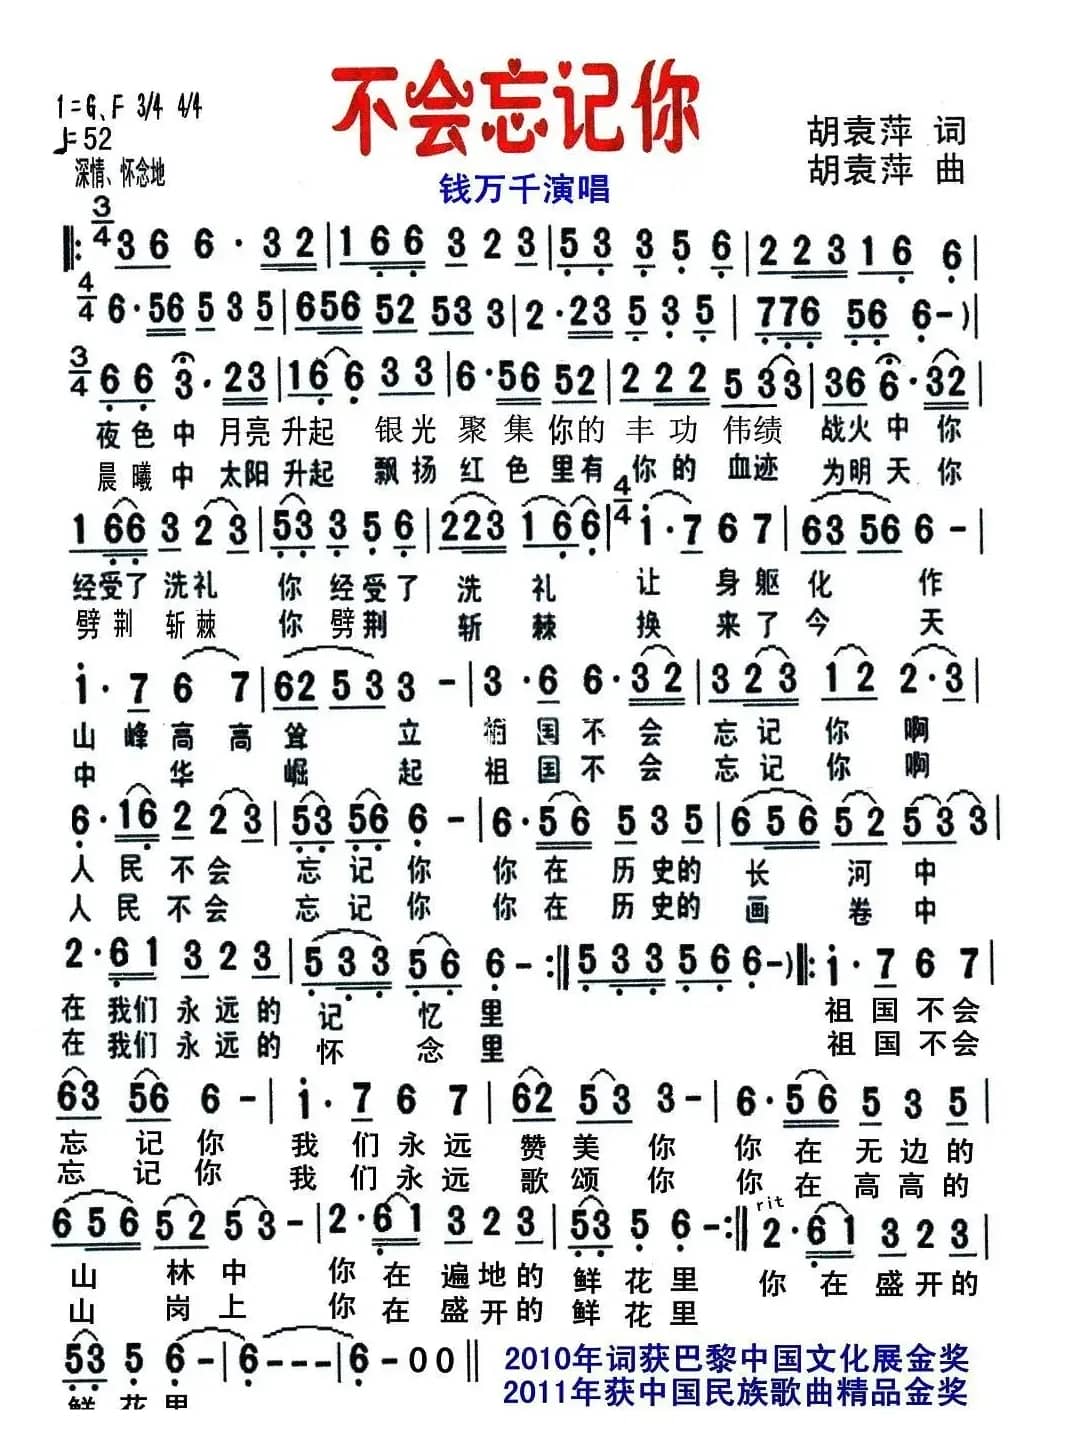 不会忘记你
1=G、F 3/4 4/4
♩=52
深情、怀念地
胡袁萍 词
胡袁萍 曲
钱万千演唱
3/4
‖: 3 6 6 · 3 2 | 1 6 6 3 2 3 | 5 3 3 5 6 | 2 2 3 1 6 6 |
4/4 6 · 56 5 3 5 | 656 52 53 3 | 2 · 23 5 3 5 | 776 56 6 - ) |
3/4 6 6 3 · 23 | 16 6 3 3 | 6 · 56 52 | 2 2 2 5 3 3 | 36 6 · 32 |
夜色中 月亮升起 银光聚集你的丰功伟绩 战火中你
晨曦中 太阳升起 飘扬红色里有你的血迹 为明天你
1 66 3 2 3 | 53 3 5 6 | 223 1 6 6 | 4/4 i · 7 6 7 | 63 56 6 - |
经受了洗礼 你经受了洗礼 让身躯化作
劈荆斩棘 你劈荆斩棘 换来了今天
i · 7 6 7 | 62 53 3 - | 3 · 6 6 · 32 | 3 2 3 1 2 2 · 3 |
山峰高高耸立 祖国不会忘记你啊
中华崛起 祖国不会忘记你啊
6 · 16 2 2 3 | 53 56 6 - | 6 · 56 5 3 5 | 6 5 6 5 2 5 3 3 |
人民不会忘记你 你在历史的长河中
人民不会忘记你 你在历史的画卷中
2 · 61 3 2 3 | 5 3 3 5 6 6 - :‖ 5 3 3 5 6 6 - ) ‖: i · 7 6 7 |
在我们永远的记忆里 祖国不会
在我们永远的怀念里 祖国不会
63 56 6 - | i · 7 6 7 | 62 53 3 - | 6 · 56 5 3 5 |
忘记你 我们永远赞美你 你在无边的
忘记你 我们永远歌颂你 你在高高的
rit
6 5 6 5 2 5 3 - | 2 · 61 3 2 3 | 53 5 6 - :‖ 2 · 61 3 2 3 |
山林中 你在遍地的鲜花里 你在盛开的
山岗上 你在盛开的鲜花里
53 5 6 - | 6 - - - | 6 - 0 0 ‖
鲜花里
2010年词获巴黎中国文化展金奖
2011年获中国民族歌曲精品金奖